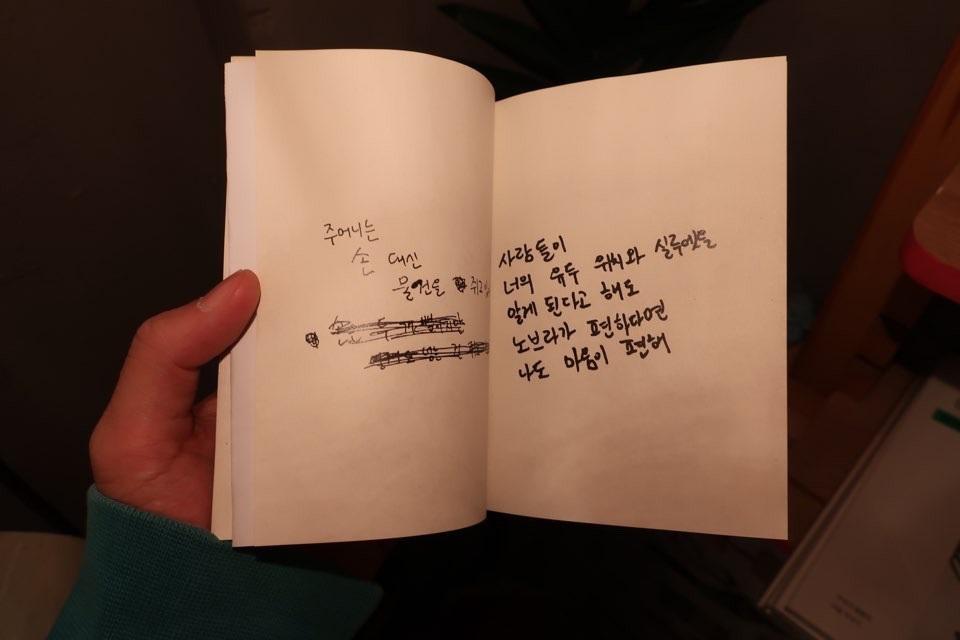 주머니는
손 대신
물건을 쥐고
사람들이
너의 유두 위치와 실루엣을
알게 된다고 해도
노브라가 편하다면
나도 마음이 편해